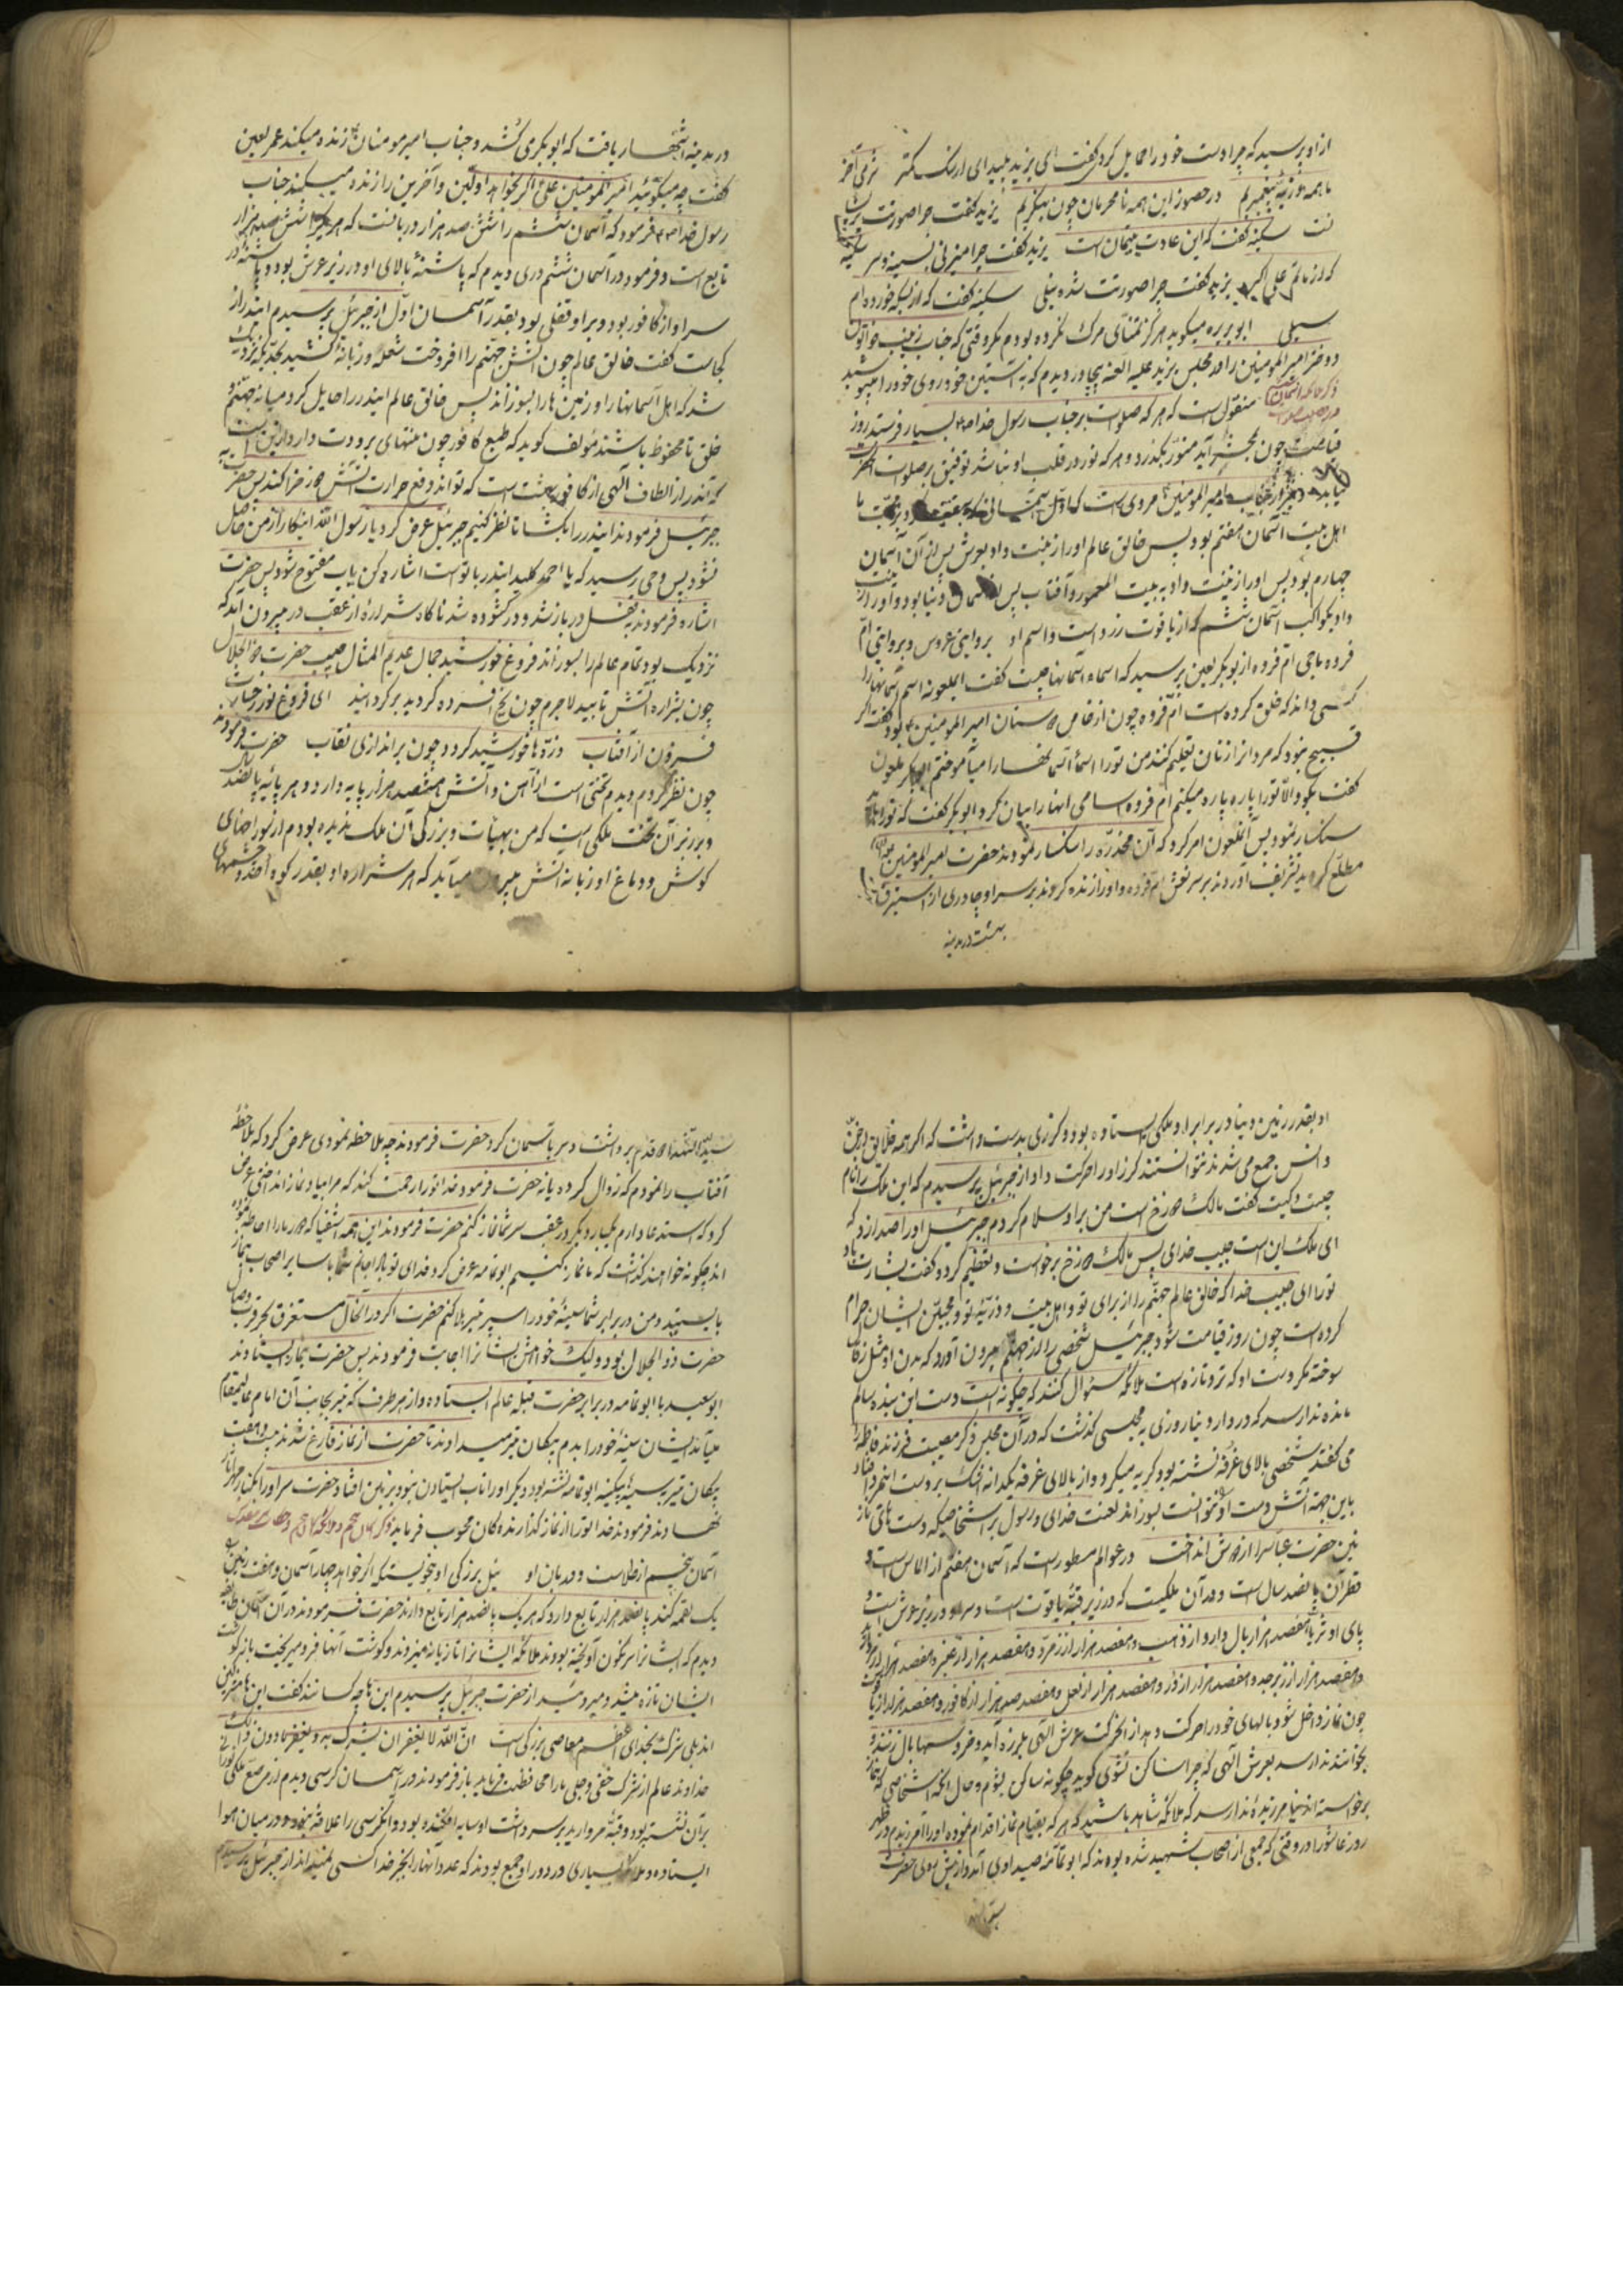 از او پرسید که چرا دست خود را حمایل کرد گفت ای یزید پلید ای از سگ کمتر
ما همه ذریه پیغمبریم در حضور این همه نامحرمان چون بنگریم یزید گفت چرا صورتت
سکینه گفت که این عادت یتیمان است یزید گفت چرا میزنی بسینه و سر سکینه
که از ماتم علی اکبر یزید گفت چرا صورتت شده نیلی سکینه گفت که از بسکه خورده ام
سیلی ابو بریره میگوید هرگز تمنای مرک نکرده بودم مگر وقتی که جناب زینب خواتون
دختر امیر المومنین را در مجلس یزید علیه العنه بیچادر دیدم که به آستین خود روی خود را میپوشید
منقول است که هر که صلوات بر جناب رسول خدا ص بسیار فرستد روز
قیامت چون بمحشر آید منور بگذرد و هر که نور در قلب او نباشد توفیق بر صلوات
نیابد جناب امیر المومنین مروی است که اول آسمانی که
اهل بیت آسمان هفتم بود پس خالق عالم او را زینت داد بعرش پس از آن آسمان
چهارم بود پس او را زینت داد به بیت المعمور و آفتاب پس دنیا بود و او را زینت
داد بکواکب آسمان ششم که از یاقوت زرد است و اسم او بروایتی عروس و بروایتی
فروه باجی ام فروه از بوبکر لعین پرسید که اسماء آسمانها چیست گفت ایملعونه اسم آسمانها را
کسی داند که خلق کرده است ام فروه چون از خاص دوستان امیر المومنین بود گفت اگر
قبیح نبود که مردانرا زنان تعلیم کنند من تو را اسماء آسمانها را میآموختم ملعون
گفت بگو والا تو را پاره پاره میکنم ام فروه اسامی انها را بیان کرد ابو بکر گفت که تو را باید
سنکسار نمود پس آنملعون امر کرد که آن مخدره را سنکسار نمودند حضرت امیر المومنین
مطلع گردید تشریف آوردند بر سر نعش ام فروه و او را زنده کردند بر سر او چادری از استبرق
بهشت در مدینه
در مدینه اشتهار یافت که ابو بکر می کشد و جناب امیر مومنان زنده میکند عمر لعین
گفت چه میگوئید امیر المومنین علی اگر بخواهد اولین و آخرین را زنده میکند جناب
رسول خدا ص فرمود که آسمان ششم را شش صد هزار دربانست که هر یکیرا شش صد هزار
تابع است و فرمود در آسمان ششم دری دیدم که پاشنهٔ بالای او در زیر عرش بود و پاشنه
سر او از کافور بود و بر او قفلی بود بقدر آسمان اول از جبرئیل پرسیدم ایندر از
کجاست گفت خالق عالم چون آتش جهنم را افروخت شعله و زبانه کشید بحدیکه نزدیک
شد که اهل آسمانها را و زمین ها را بسوزاند پس خالق عالم ایندر را حایل کرد میانه جهنم و
خلق تا محفوظ باشند مؤلف گوید که طبع کافور چون منتهای برودت دارد از این است
که آندر از الطاف آلهی از کافور بهشت است که تواند دفع حرارت آتش دوزخ را کند پس حضرت به
جبرئیل فرمودند ایندر را بکشا تا نظر کنیم جبرئیل عرض کرد یا رسول الله اینکار از من حاصل
نشود پس وحی رسید که یا احمد کلید ایندر با تو است اشاره کن باب مفتوح شود پس حضرت
اشاره فرمودند بقفل در باز شد و در گشوده شد ناگاه شراره از عقب در بیرون آمد که
نزدیک بود تمام عالم را بسوزاند فروغ خورشید جمال عدیم المثال حبیب حضرت ذو الجلال
چون بشراره آتش تابید لاجرم چون یخ افسرده گردید برگردانید ای فروغ نور رخسارت
فزون از آفتاب ذره ها خورشید گردد چون براندازی نقاب حضرت فرمودند
چون نظر کردم دیدم تختی است از آهن و آتش هفتصد هزار پایه دارد و هر پایه پانصد
و بر زبر آن تخت ملکی است که من بهیأت و بزرکی آن ملک ندیده بودم از نور اعضای
گوش و دماغ او زبانه آتش بیرون میآید که هر شراره او بقدر کوه احد و چشمهای
او بقدر زمین دنیا در برابر او ملکی ایستاده بود و گرزی بدست داشت که اگر همه خلایق از جن
و انس جمع می شدند نتوانستند گرز او را حرکت داد از جبرئیل پرسیدم که این ملک را نام
چیست و کیست گفت مالک دوزخ است من بر او سلام کردم جبرئیل او را صدا زد که
ای ملک این است حبیب خدای پس مالک دوزخ برخواست و تعظیم کرد و گفت بشارت باد
تو را ای حبیب خدا که خالق عالم جهنم را از برای تو و اهل بیت و ذریه تو و محبین ایشان حرام
کرده است چون روز قیامت شود جبرئیل شخصی را از جهنم بیرون آورد که بدن او مثل زکال
سوخته مگر دست او که تر و تازه است ملائکه سئوال کنند که چگونه است دست این بنده سالم
مانده ندا رسد که در دار دنیا روزی به مجلسی گذشت که در آن مجلس ذکر مصیبت فرزند فاطمه
می گفتند شخصی بالای غرفه نشسته بود گریه میکرد و از بالای غرفه یکدانه اشک بر دست اینمرد افتاد
باین جهة آتش دست او نتوانست بسوزاند لعنت خدای و رسول بر اشخاصیکه دست های
حضرت عباسرا از دوش انداخت در عوالم مسطور است که آسمان هفتم از الماس است و
قطر آن پانصد سال است و در آن ملکیست که در زیر قبهٔ یاقوت است و سر او در زیر عرش است و
پای او هفتصد هزار بال دارد از ذهب و هفتصد هزار از زمرد و هفتصد هزار از عنبر و هفتصد هزار
و هفتصد هزار از زبرجد و هفتصد هزار از در و هفتصد هزار از لعل و هفتصد هزار از کافور و هفتصد هزار از
چون نماز داخل شود بالهای خود را حرکت دهد از حرکت عرش آلهی بلرزه آید و خروسها بال زنند و
بخوانند ندا رسد بعرش آلهی که چرا ساکن نشوی گوید چگونه ساکن بشوم و حال آنکه اشخاصی که بنماز
برخواسته اند بیامرز ندا رسد که ملائکه شاهد باشید که هر که بقیام نماز اقدام نموده او را آمرزیدم در ظهر
روز عاشورا در وقتی که جمعی از اصحاب شهید شده بودند که ابو ثمامه صیداوی آمد و از پیش روی حضرت
سید الشهداء قدم برداشت و سر باسمان کرد حضرت فرمودند چه ملاحظه نمودی عرض کرد که ملاحظهٔ
آفتاب را نمودم که زوال کرده یا نه حضرت فرمود خدا تو را رحمت کند که مرا بیاد نماز انداختی عرض
کرد که استدعا دارم یکبار دیگر در عقب سر شما نماز کنم حضرت فرمودند این همه اشقیا که دور ما را احاطه نموده
اند چگونه خواهند گذاشت که ما نماز کنیم ابو ثمامه عرض کرد فدای تو باد جانم شما با سایر اصحاب بنماز
بایستید و من در برابر شما سینهٔ خود را سپر تیر بلا کنم حضرت اگر در آنحال مستغرق بحر قرب وصال
حضرت ذو الجلال بود و لیک خواهش ایشانرا اجابت فرمودند پس حضرت بنماز ایستادند
ابو سعید با ابو ثمامه در برابر حضرت قبله عالم ایستاده و از هر طرف که تیر بجانب آن امام عالیمقام
میآمد ایشان سینهٔ خود را بدم پیکان تیر میدادند تا حضرت از نماز فارغ شدند بیست و هفت
پیکان تیر بر سینهٔ بیکینه ابو ثمامه نشسته بود دیگر او را تاب ایستادن نبود بزمین افتاد حضرت سر او را بکنار
نهادند فرمودند خدا تو را از نماز گذارنده گان محسوب فرماید
آسمان پنجم از طلاست و دربان او بزرکی او بنحویستکه اگر خواهد چهار آسمان و هفت زمین را
یک لقمه کند پانصد هزار تابع دارد که هر یک پانصد هزار تابع دارند حضرت فرمودند در آن آسمان طایفه
دیدم که ایشانرا سرنگون آویخته بودند ملائکه ایشانرا تازیانه میزدند و گوشت آنها فرو میریخت باز گوشت
ایشان تازه میشد و میروئید از حضرت جبرئیل پرسیدم این ها چه کسانند گفت این ها مشرکین
اند بلی شرک بخدای اعظم معاصی بزرگی است ان الله لا یغفر ان یشرک به و یغفر ما دون ذلک
خداوند عالم از شرک خفی و جلی ما را محافظت فرماید باز فرمودند در آسمان کرسی دیدم از مرصع ملکی
بر آن نشسته بود و قبهٔ مروارید بر سر داشت او سایه افکنده بود و انکرسی را علاقهٔ نبود و در میان هوا
ایستاده و ملائکه بسیاری در دور او جمع بودند که عدد انها را بجز خدا کسی نمیداند از جبرئیل پرسیدم